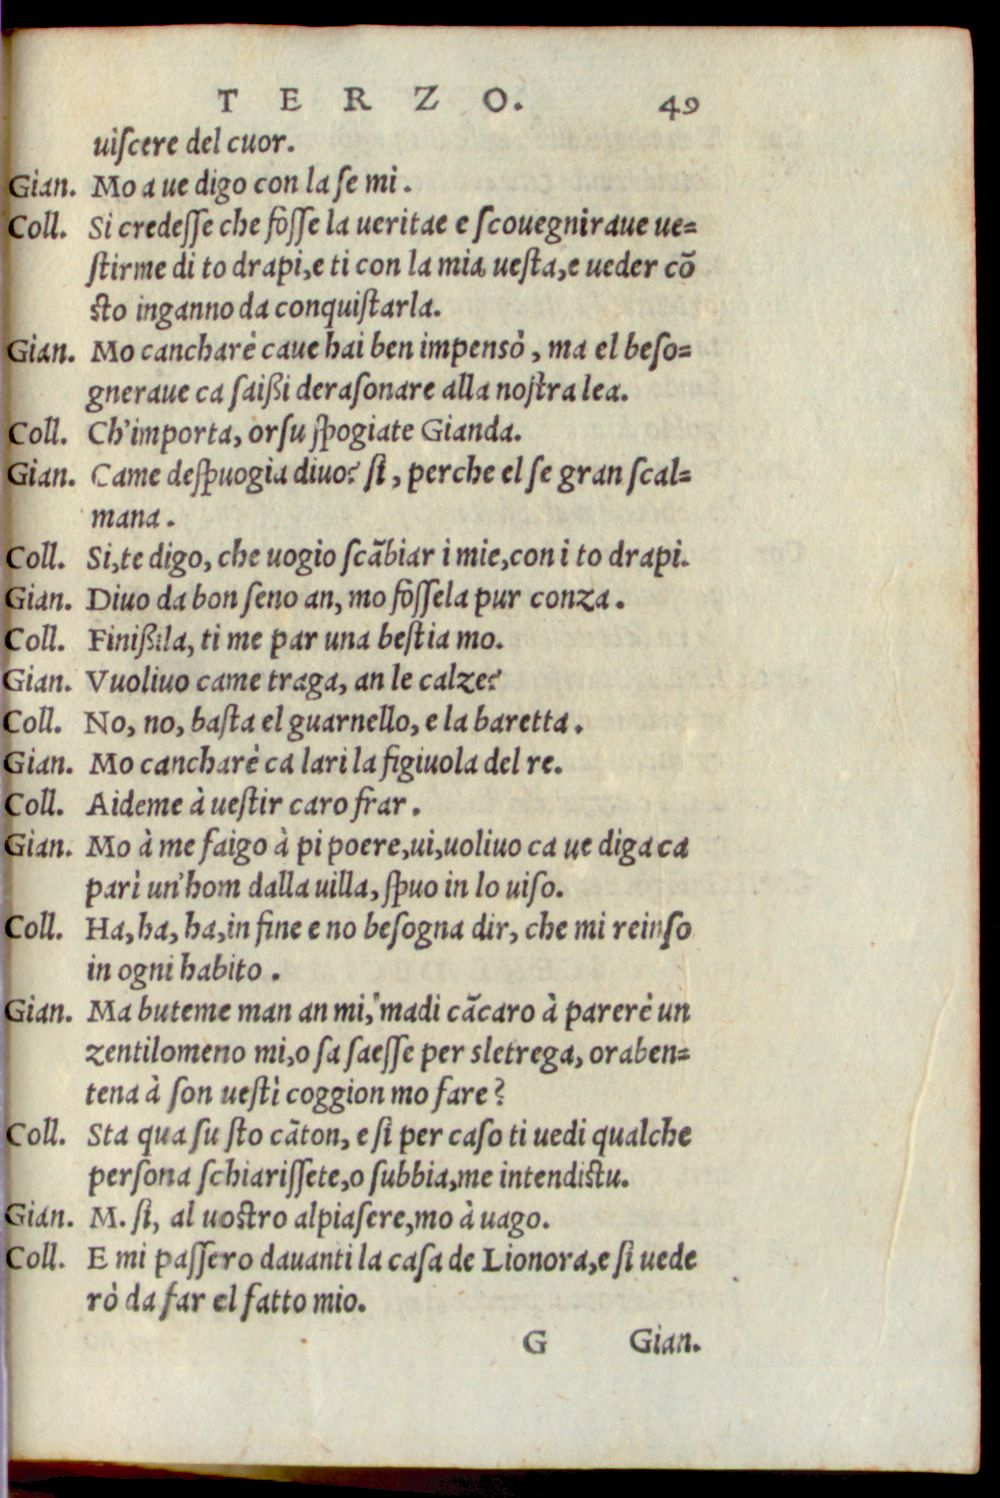 TERZO. 49
uiſcere del cuor.
Gian. Mo a ue digo con la ſe mi.
Coll. Si credeſſe che foſſe la ueritae e ſcouegniraue ue=
ſtirme di to drapi, e ti con la mia ueſta, e ueder cõ
ſto inganno da conquiſtarla.
Gian. Mo cancharè caue hai ben impensò, ma el beſo=
gneraue ca ſaißi deraſonare alla noſtra lea.
Coll. Ch'importa, orſu ſpogiate Gianda.
Gian. Came deſpuogia diuo? ſi, perche el ſe gran ſcal=
mana.
Coll. Si, te digo, che uogio ſcãbiar i mie, con i to drapi.
Gian. Diuo da bon ſeno an, mo foſſela pur conza.
Coll. Finißila, ti me par una beſtia mo.
Gian. Vuoliuo came traga, an le calze?
Coll. No, no, baſta el guarnello, e la baretta.
Gian. Mo cancharè ca lari la figiuola del re.
Coll. Aideme à ueſtir caro frar.
Gian. Mo à me faigo à pi poere, ui, uoliuo ca ue diga ca
parì un'hom dalla uilla, ſpuo in lo uiſo.
Coll. Ha, ha, ha, in fine e no beſogna dir, che mi reinſo
in ogni habito.
Gian. Ma buteme man an mi, madi cãcaro à parerè un
zentilomeno mi, o ſa ſaeſſe per sletrega, oraben=
tena à ſon ueſtì coggion mo fare?
Coll. Sta qua ſu ſto cãton, e ſi per caſo ti uedi qualche
perſona ſchiariſſete, o ſubbia, me intendiſtu.
Gian. M. ſi, al uoſtro alpiaſere, mo à uago.
Coll. E mi paſſero dauanti la caſa de Lionora, e ſi uede
rò da far el fatto mio.
G Gian.